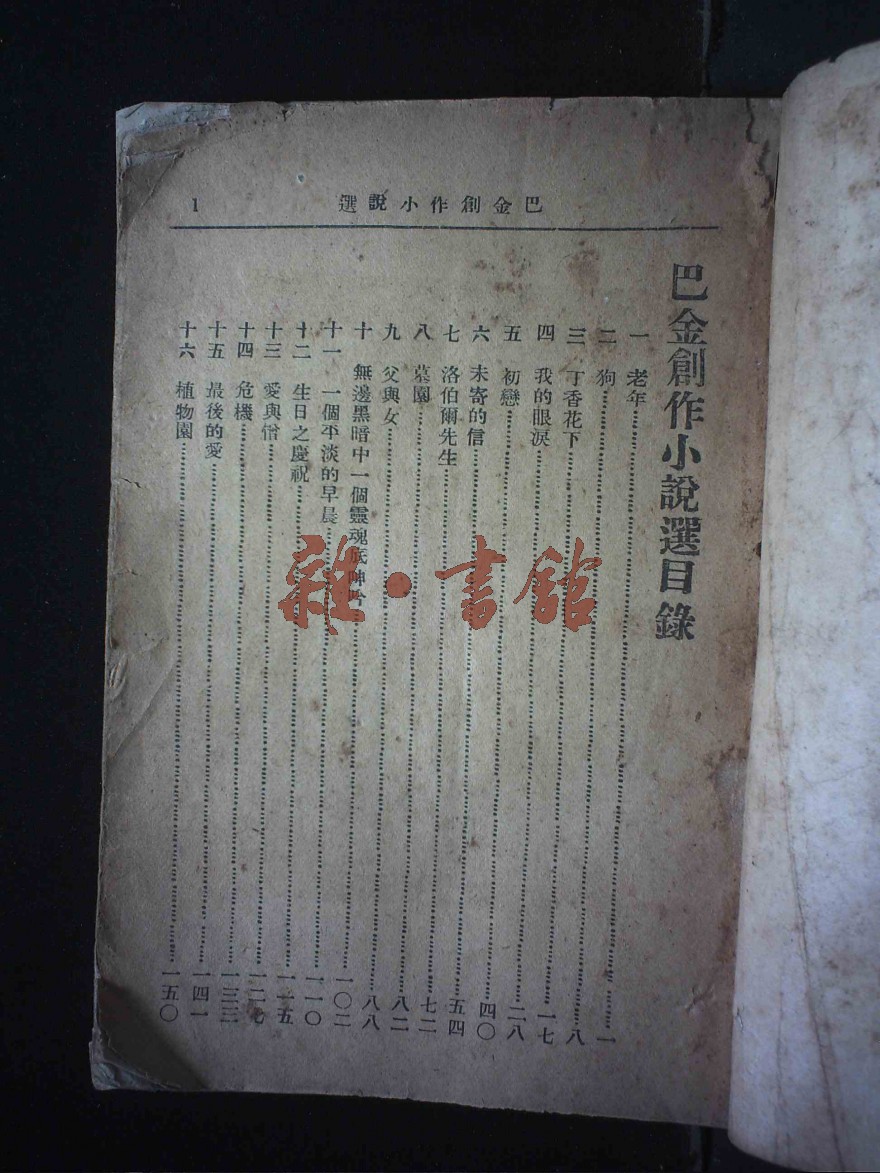 巴金創作小說選
1
巴金創作小說選目錄
一 老年……一
二 狗……八
三 丁香花下……一七
四 我的眼淚……二八
五 初戀……四〇
六 未寄的信……五四
七 洛伯爾先生……七二
八 墓園……八二
九 父與女……八八
十 無邊黑暗中一個靈魂底呻吟……一〇二
十一 一個平淡的早晨……一一〇
十二 生日之慶祝……一一五
十三 愛與憎……一二七
十四 危機……一三三
十五 最後的愛……一四一
十六 植物園……一五〇
雜·書館